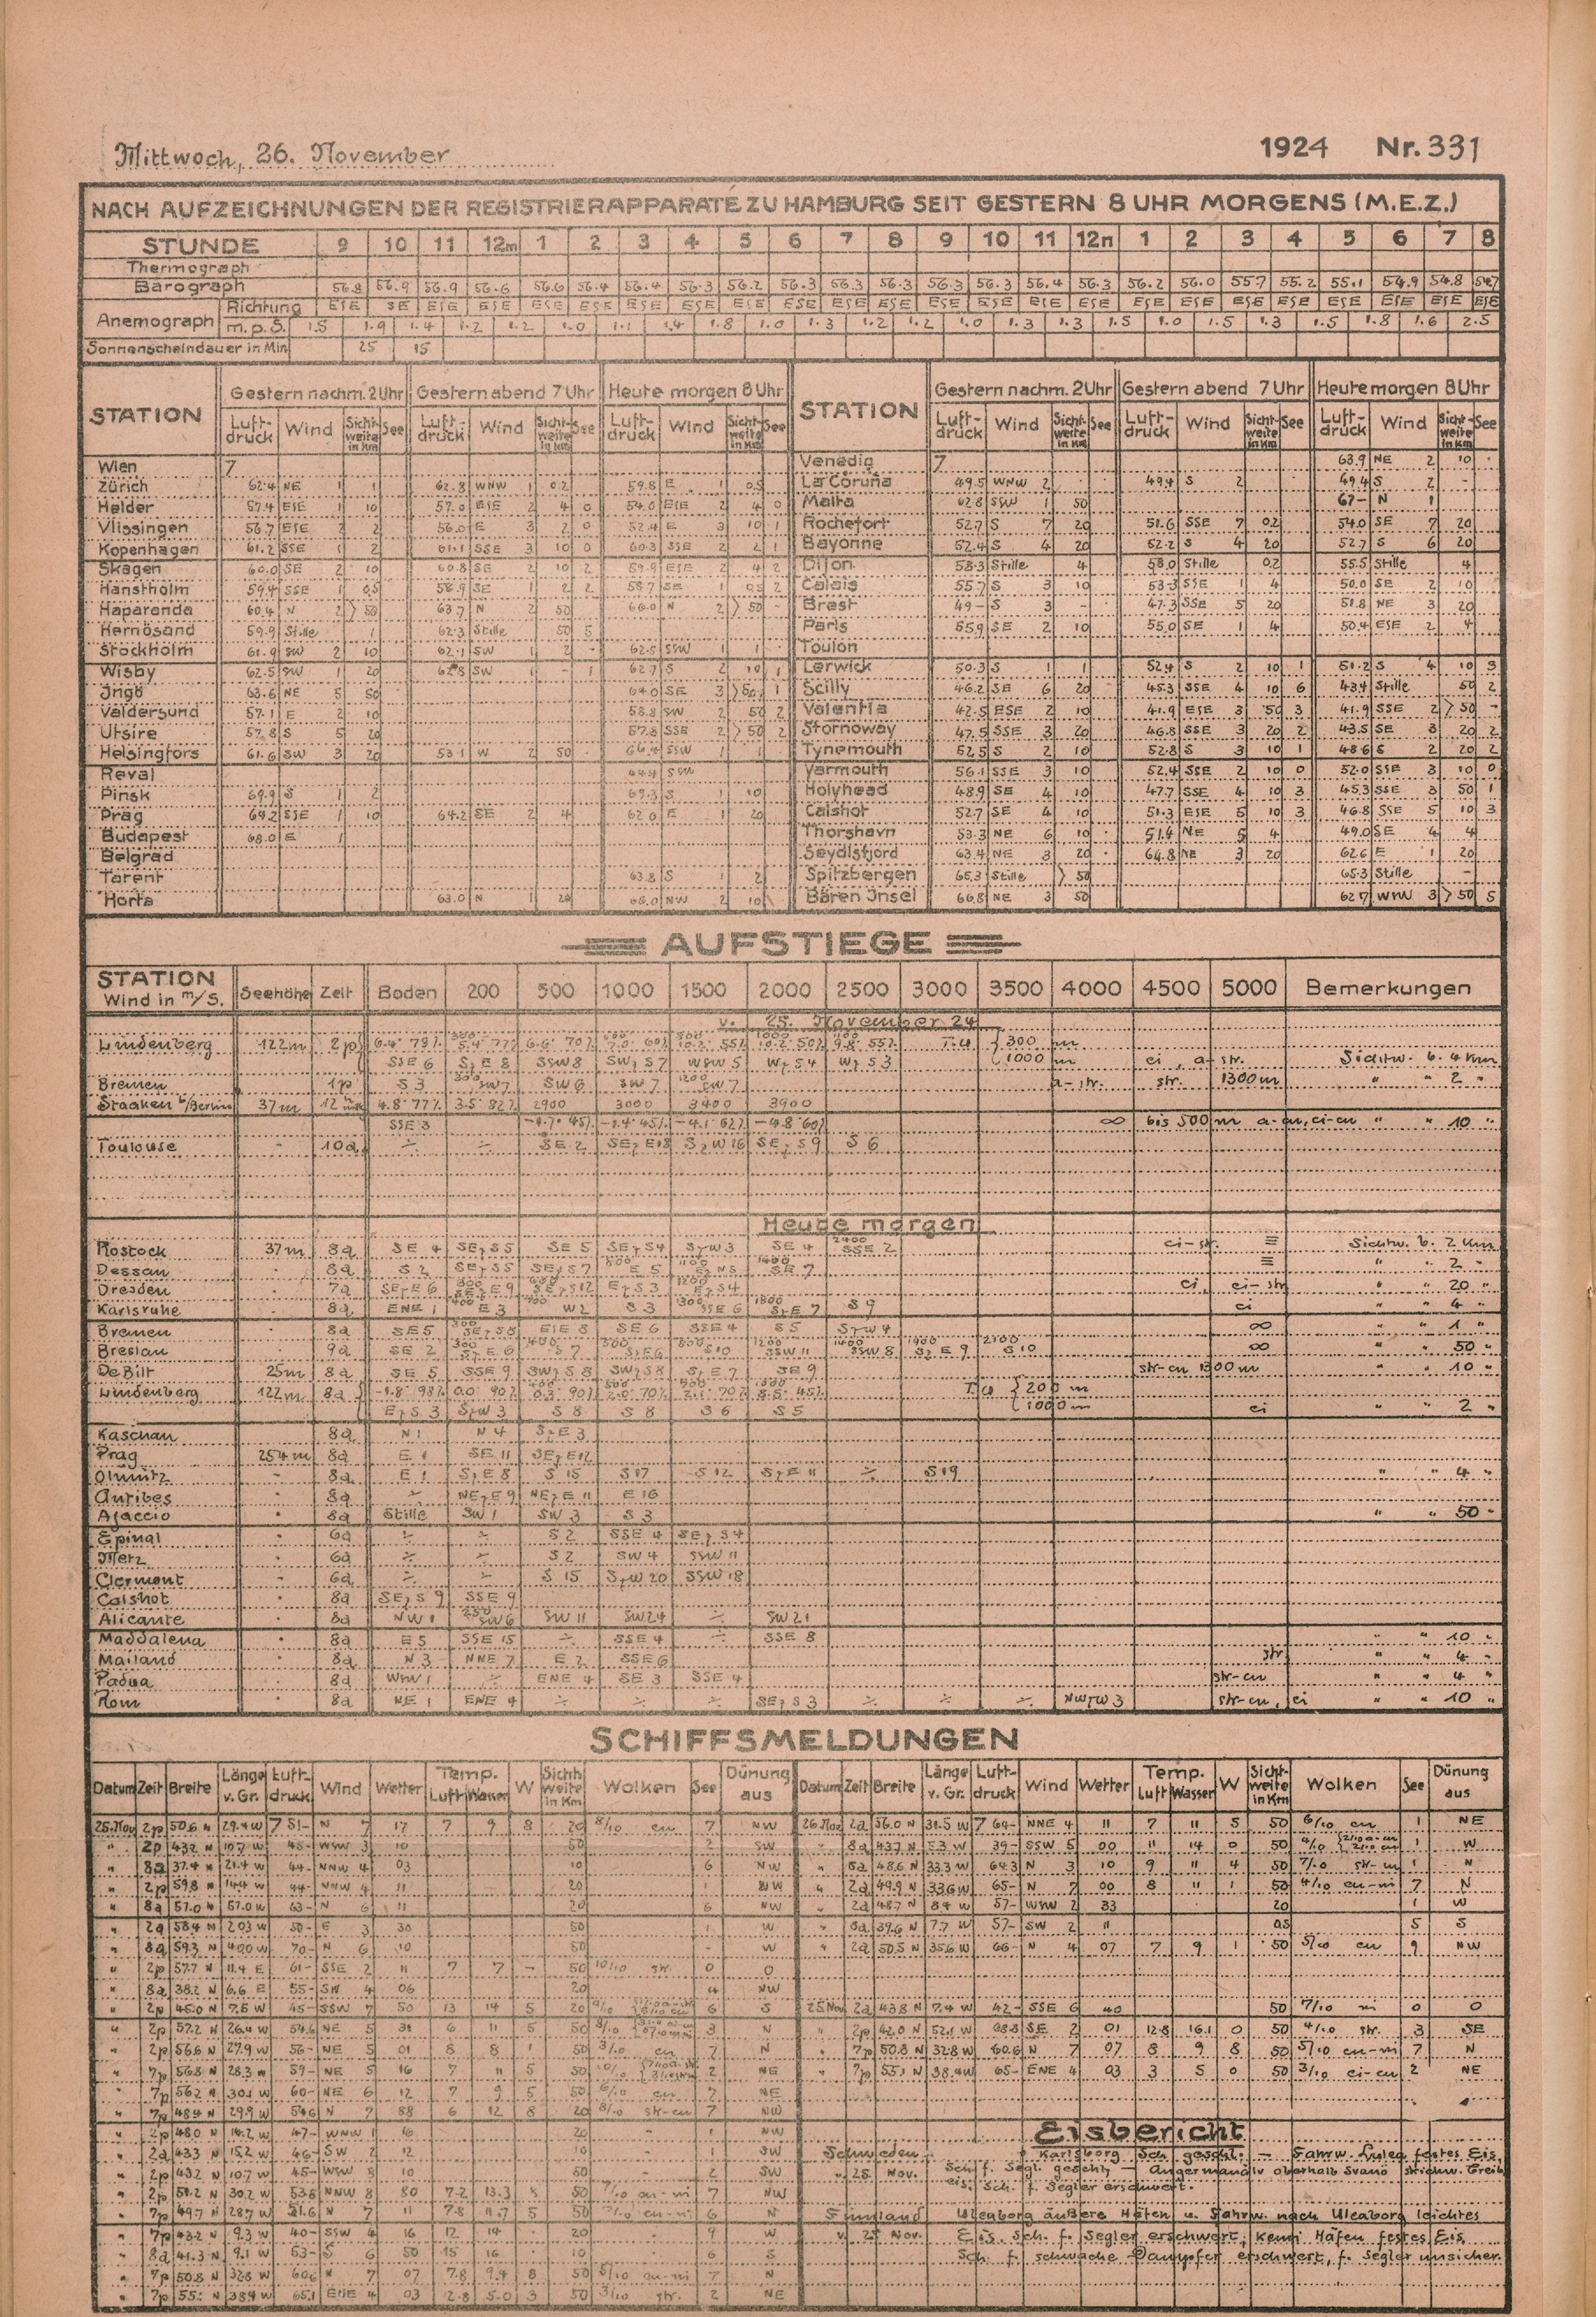 Mittwoch, 26. November 1924 Nr. 331
NACH AUFZEICHNUNGEN DER REGISTRIERAPPARATE ZU HAMBURG SEIT GESTERN 8 UHR MORGENS (M.E.Z.)
STUNDE 9 10 11 12m 1 2 3 4 5 6 7 8 9 10 11 12n 1 2 3 4 5 6 7 8
Thermograph
Barograph 56.8 56.9 56.9 56.6 56.6 56.4 56.4 56.3 56.2 56.3 56.3 56.3 56.3 56.3 56.4 56.3 56.2 56.0 55.7 55.2 55.1 54.9 54.8 54.7
Anemograph Richtung ESE SE ESE ESE ESE ESE ESE ESE ESE ESE ESE ESE ESE ESE ESE ESE ESE ESE ESE ESE ESE ESE ESE ESE
m.p.S. 1.5 1.9 1.4 1.2 1.2 1.0 1.1 1.4 1.8 1.0 1.3 1.2 1.2 1.0 1.3 1.3 1.5 1.0 1.5 1.3 1.5 1.8 1.6 2.5
Sonnenscheindauer in Min. 25 15
STATION Gestern nachm. 2 Uhr Gestern abend 7 Uhr Heute morgen 8 Uhr STATION Gestern nachm. 2 Uhr Gestern abend 7 Uhr Heute morgen 8 Uhr
Luftdruck Wind Sichtweite in Km See Luftdruck Wind Sichtweite in Km See Luftdruck Wind Sichtweite in Km See Luftdruck Wind Sichtweite in Km See Luftdruck Wind Sichtweite in Km See Luftdruck Wind Sichtweite in Km See
Wien 7 Venedig 7 63.9 NE 2 10
Zürich 62.4 NE 1 1 62.8 WNW 1 0.2 59.8 E 1 0.5 La Coruña 49.5 WNW 2 49.4 S 2 49.4 S 2
Helder 57.4 ESE 1 10 57.0 ESE 2 4 0 54.0 ESE 2 4 0 Malta 62.8 SSW 1 50 67- N 1
Vlissingen 56.7 ESE 2 2 56.0 E 3 2 0 52.4 E 3 10 1 Rochefort 52.7 S 7 20 51.6 SSE 7 0.2 54.0 SE 7 20
Kopenhagen 61.2 SSE 1 2 61.1 SSE 3 10 0 60.3 SSE 2 2 1 Bayonne 52.4 S 4 20 52.2 S 4 20 52.7 S 6 20
Skagen 60.0 SE 2 10 60.8 SE 2 10 2 59.9 ESE 2 4 2 Dijon 58.3 Stille 4 58.0 Stille 0.2 55.5 Stille 4
Hanstholm 59.4 SSE 1 0.5 58.9 SE 1 2 2 58.7 SE 1 0.5 2 Calais 55.7 S 3 10 53.3 SSE 1 4 50.0 SE 2 10
Haparanda 60.4 N 2 >50 63.7 N 2 50 66.0 N 2 >50 - Brest 49- S 3 - 47.3 SSE 5 20 51.8 NE 3 20
Hernösand 59.9 Stille 1 62.3 Stille 50 5 Paris 55.9 SE 2 10 55.0 SE 1 4 50.4 ESE 2 4
Stockholm 61.9 SW 2 10 62.1 SW 1 2 - 62.5 SSW 1 1 Toulon
Wisby 62.5 SW 1 20 62.8 SW 1 - 1 62.7 S 2 10 1 Lerwick 50.3 S 1 1 52.4 S 2 10 1 51.2 S 4 10 3
Ingö 63.6 NE 5 50 64.0 SE 3 >50 1 Scilly 46.2 SE 6 20 45.3 SSE 4 10 6 43.4 Stille 50 2
Valdersund 57.1 E 2 10 58.8 SW 2 50 2 Valentia 42.5 ESE 2 10 41.9 ESE 3 50 3 41.9 SSE 2 >50 -
Utsire 57.8 S 5 20 57.8 SSE 2 >50 2 Stornoway 47.5 SSE 3 20 46.8 SSE 3 20 2 43.5 SE 3 20 2
Helsingfors 61.6 SW 3 20 53.1 W 2 50 SSW 1 1 Tynemouth 52.5 S 2 10 52.8 S 3 10 1 48.6 S 2 20 2
Reval SSW Yarmouth 56.1 SSE 3 10 52.4 SSE 2 10 0 52.0 SSE 3 10 0
Pinsk 69.9 S 1 2 69.3 S 1 10 Holyhead 48.9 SE 4 10 47.7 SSE 4 10 3 45.3 SSE 3 50 1
Prag 64.2 SSE 1 10 64.2 SE 2 4 62.0 E 1 20 Calshot 52.7 SE 4 10 51.3 ESE 5 10 3 46.8 SSE 5 10 3
Budapest 68.0 E 1 Thorshavn 53.3 NE 6 10 51.4 NE 5 4 49.0 SE 4 4
Belgrad Seydisfjord 63.4 NE 3 20 64.8 NE 3 20 62.6 E 1 20
Tarent 63.8 S 1 2 Spitzbergen 65.3 Stille >50 65.3 Stille -
Horta 63.0 N 1 20 66.0 NW 2 10 Bären Insel 66.8 NE 3 50 62.7 WNW 3 >50 5
AUFSTIEGE
STATION Wind in m/s. Seehöhe Zeit Boden 200 500 1000 1500 2000 2500 3000 3500 4000 4500 5000 Bemerkungen
v. 25. November 24
Lindenberg 122m 2p 6.4° 79% 5.4° 77% 6.6° 70% 7.0° 60% 10.2° 55% 10.2° 50% 9.8° 55% T.U. 300 m
SSE 6 SzE 8 SSW 8 SWzS 7 WSW 5 WzS 4 WzS 3 1000 m ci, a-str. Sichtw. b. 4 Km
Bremen 1p S 3 300 SW 7 SW 6 SW 7 1200 SW 7 a-str. str. 1300 m " " 2 "
Staaken b/Berlin 37m 12 4.8° 77% 3.5° 82% 2900 3000 3400 3900
SSE 3 -1.7° 45% -1.4° 45% -4.1° 62% -4.8° 60% ∞ bis 500 m a-cu, ci-cu " " 10 "
Toulouse - 10a ÷ ÷ SE 2 SEzE 18 SzW 16 SEzS 9 S 6
Heute morgen
Rostock 37m 8a SE 4 SEzS 5 SE 5 SEzS 4 SzW 3 SE 4 2400 SSE 2 ci-str. ≡ Sichtw. b. 2 Km
Dessau 8a S 2 SEzS 5 SEzS 7 E 5 1400 SE 7 ≡ " 2 "
Dresden 7a SEzE 6 E 9 S 12 EzS 3 1200 S 4 ci, ci-str " " 20 "
Karlsruhe 8a ENE 1 400 E 3 W 2 S 3 1300 SSE 6 1800 SzE 7 S 9 ci " " 4 "
Bremen 8a SE 5 300 ESE 8 SE 6 SSE 4 S 5 SzW 4 ∞ " " 1 "
Breslau 9a SE 2 300 SzE 6 400 S 7 500 SzE 6 800 S 10 1200 SSW 11 1400 SSW 8 1900 SzE 9 2100 S 10 ∞ " " 50 "
De Bilt 25m 8a SE 5 SSE 9 SWzS 8 SWzS 8 SzE 7 SE 9 str-cu 1300 m " " 10 "
Lindenberg 122m 8a -1.8° 98% 0.0° 90% 0.3° 90% 2.0° 70% 2.1° 70% 5.5° 45% T.U. 200 m
EzS 3 SzW 3 S 8 S 8 S 6 S 5 1000 m ci " " 2 "
Kaschau 8a N 1 N 4 SzE 3
Prag 254m 8a E 1 SE 11 SEzE 12
Olmütz - 8a E 1 SzE 8 S 15 S 17 S 12 SzE 11 ÷ S 19 " " 4 "
Antibes 8a ÷ NEzE 9 NEzE 11 E 16
Ajaccio 8a Stille SW 1 SW 3 S 3 " " 50 "
Epinal 6a ÷ ÷ S 2 SSE 4 SEzS 4
Metz 6a ÷ ÷ S 2 SW 4 SSW 11
Clermont 6a ÷ ÷ S 15 SzW 20 SSW 18
Calshot 8a SEzS 9 SSE 9
Alicante 8a NW 1 250 SW 6 SW 11 SW 24 ÷ SW 21
Maddalena 8a E 5 SSE 15 ÷ SSE 4 ÷ SSE 8 " " 10 "
Mailand 8a N 3 NNE 7 E 2 SSE 6 str. " " 4 "
Padua 8a WNW 1 ÷ ENE 4 SE 3 SSE 4 str-cu " " 4 "
Rom 8a NE 1 ENE 4 ÷ ÷ ÷ SEzS 3 ÷ ÷ ÷ NWzW 3 str-cu, ci " " 10 "
SCHIFFSMELDUNGEN
Datum Zeit Breite Länge v. Gr. Luftdruck Wind Wetter Temp. Luft Wasser W Sichtweite in Km Wolken See Dünung aus Datum Zeit Breite Länge v. Gr. Luftdruck Wind Wetter Temp. Luft Wasser W Sichtweite in Km Wolken See Dünung aus
25.Nov 2p 50.6 N 29.4 W 7 51- N 7 17 7 9 8 20 8/10 cu 7 NW 26.Nov 2a 56.0 N 31.5 W 7 64- NNE 4 11 7 11 5 50 6/10 cu 1 NE
" 2p 43.2 N 10.7 W 45- WSW 3 10 50 2 SW " 8a 43.7 N 5.3 W 39- SSW 5 00 11 14 0 50 4/10 1 W
" 8a 37.4 N 21.4 W 44- NNW 4 03 10 6 NW " 8a 48.6 N 33.3 W 64.3 N 3 10 9 11 4 50 7/10 str-cu 1 N
" 2p 59.8 N 14.4 W 44- NNW 4 11 20 1 NW " 2a 49.9 N 33.6 W 65- N 7 00 8 11 1 50 4/10 cu-ni 7 N
" 8a 57.0 N 57.0 W 63- N 6 11 20 6 NW " 2a 48.7 N 8.4 W 57- WSW 2 33 20 1 W
" 2a 58.4 N 20.3 W 50- E 3 30 50 1 W " 8a 39.6 N 7.7 W 57- SW 2 11 0.5 5 S
" 8a 59.3 N 40.0 W 70- N 6 10 50 - W " 2a 50.5 N 35.6 W 66- N 4 07 7 9 1 50 5/10 cu 9 NW
" 2p 57.7 N 11.4 E 61- SSE 2 11 7 7 - 50 10/10 str. 0 0
" 8a 38.2 N 6.6 E 55- SW 4 06 20 4 NW
" 2p 45.0 N 7.5 W 45- SSW 7 50 13 14 5 20 9/10 6 S 25.Nov 2a 43.8 N 7.4 W 42- SSE 6 40 50 7/10 ni 0 0
" 2p 57.2 N 26.4 W 54.6 NE 5 31 6 11 5 50 8/10 3 N " 2p 42.0 N 52.1 W 68.8 SE 2 01 12.8 16.1 0 50 4/10 str. 3 SE
" 2p 56.6 N 27.9 W 56- NE 5 01 8 8 1 50 3/10 cu 7 N " 7p 50.8 N 32.8 W 60.6 N 7 07 8 9 8 50 5/10 cu-ni 7 N
" 7p 56.8 N 28.3 W 59- NE 5 16 7 11 5 50 10/10 2 NE " 7p 55.1 N 38.4 W 65- ENE 4 03 3 5 0 50 3/10 ci-cu 2 NE
" 7p 56.2 N 30.1 W 60- NE 6 12 7 9 5 50 6/10 cu 7 NE
" 7p 48.4 N 29.9 W 54.6 N 7 88 6 12 8 20 8/10 str-cu 7 NW
Eisbericht
" 2p 48.0 N 16.2 W 47- WNW 1 16 20 - 1 NW
" 2a 43.3 N 15.2 W 46- SW 2 12 10 - 1 SW Schweden Karlsborg Sch. geschl. — Fahrw. Lulea festes Eis,
" 2p 43.2 N 10.7 W 45- WSW 3 10 50 - 2 SW v. 25. Nov. Schf. Segl. geschl. — Angermanälv oberhalb Svanö strichw. Treib
" 2p 51.2 N 30.2 W 53.8 NNW 8 80 7.2 13.3 8 50 7/10 cu-ni 7 NW eis. Sch. f. Segler erschwert.
" 7p 49.7 N 28.7 W 51.6 N 7 11 7.8 11.7 5 50 7/10 cu-ni 6 N Finnland Uleaborg äußere Häfen u. Fahrw. nach Uleaborg leichtes
" 7p 43.2 N 9.3 W 40- SSW 4 16 12 14 20 9 W v. 25 Nov. Eis. Sch. f. Segler erschwert, Kemi Häfen festes Eis.
" 8a 41.3 N 9.1 W 53- S 6 50 15 16 10 6 S Sch. f. schwache Dampfer erschwert, f. Segler unsicher.
" 7p 50.8 N 32.8 W 60.6 N 7 07 7.8 9.4 8 50 5/10 cu-ni 7 N
" 7p 55.1 N 38.4 W 65.1 ENE 4 03 2.8 5.0 3 50 3/10 str. 2 NE